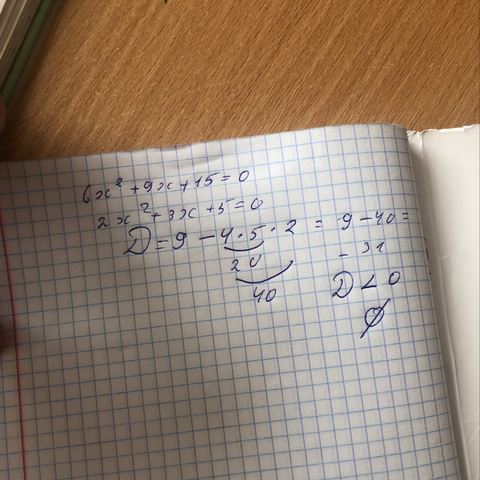 6x² + 9x + 15 = 0
2x² + 3x + 5 = 0
D = 9 - 4 · 5 · 2 = 9 - 40 =
20
- 31
40
D < 0
∅